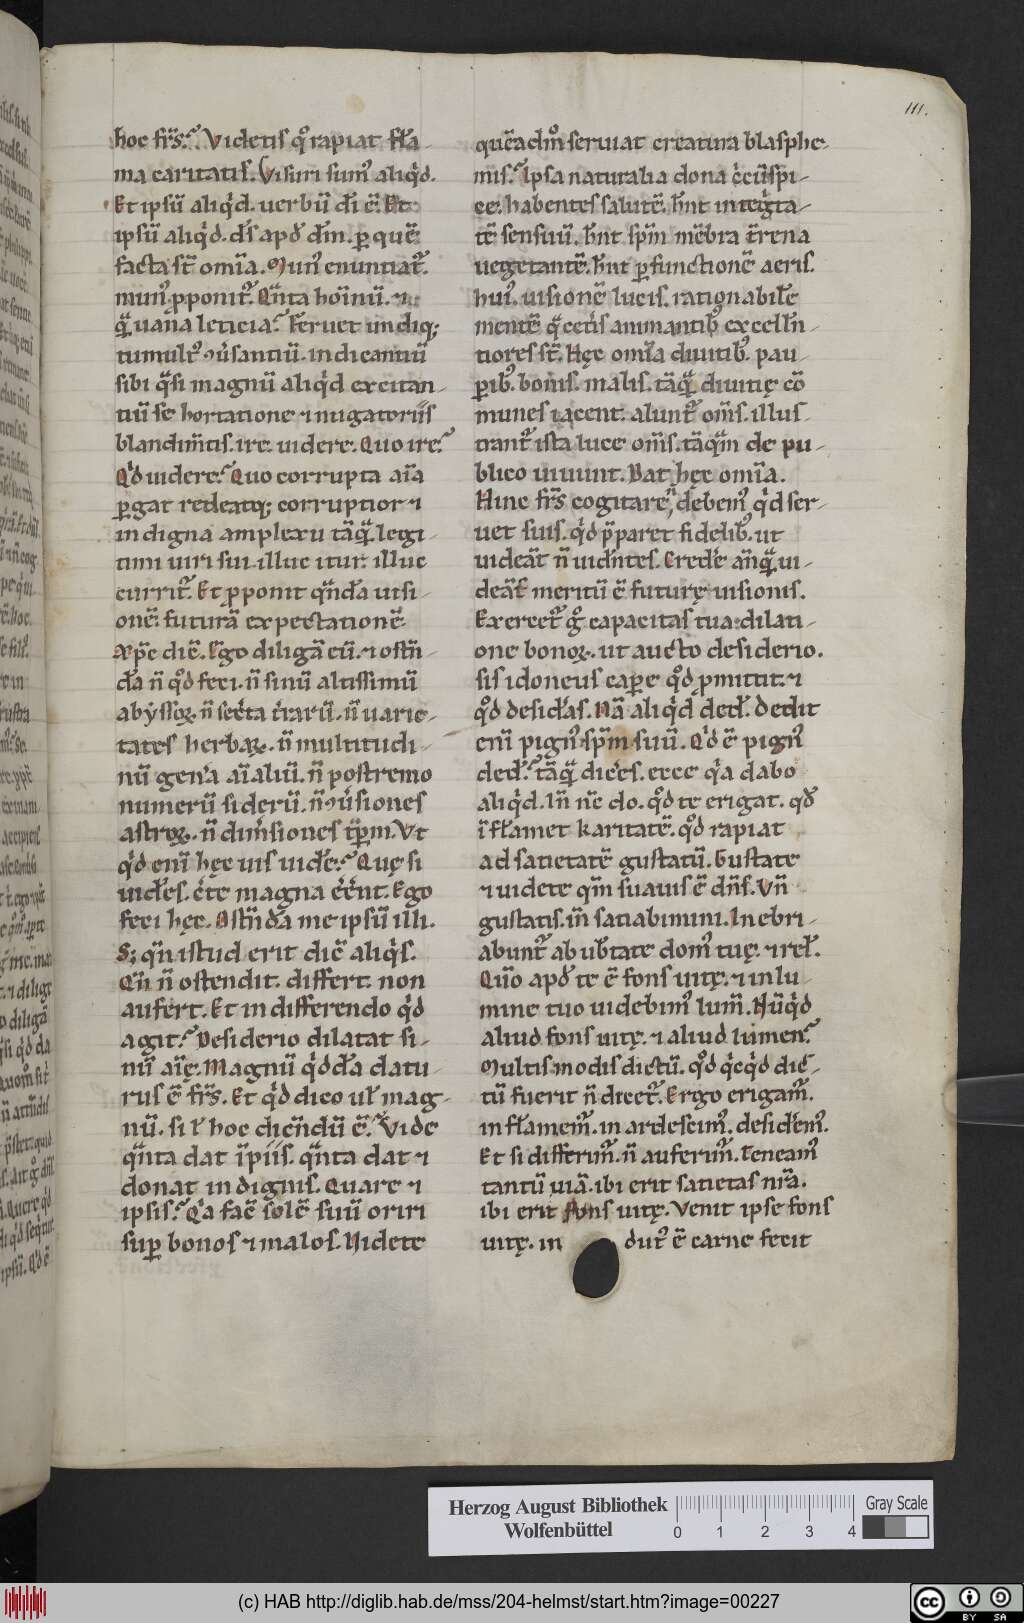 111.
hoc fr̄s? Videtis q̊ rapiat fla-
ma caritatis. Visuri sum᷒ aliq̇d.
Et ipsū aliq̇d. uerbū dī ē. Et
ipsū aliq̇d. d̄s apď dm̄. ꝑ quē
facta st̄ omīa. Nunc᷒ enuntiat᷑.
mun᷒ ꝓponit᷑. Qnta hoīnū. ⁊
uana leticia? Feruet undiq;
tumult᷒ ꝯu̇santiū. indicantiū
sibi qsi magnū aliq̇d excitan-
tiū se hortatione ⁊ nugatoriis
blandim̄tis. ire. uidere. Quo ire?
Qd uidere? Quo corrupta aīa
ꝑgat redeatq; corruptior ⁊
indigna amplexu tāq legi-
timi uiri sui. illuc itur. illuc
currit᷑. Et ꝓponit qnda uisi-
onē. futurā expectationē
xp̄c dic̄. Ego diligā eū. ⁊ ostn̄-
dā n̄ qd feci. n̄ sinū altissimū
abyssoꝝ. n̄ sec̄ta t̄rarū. n̄ uarie-
tates herbaꝝ. n̄ multitudi-
nū gen̄a aīaliū. n̄ postremo
numerū siderū. n̄ ꝯu̇siones
astroꝝ. n̄ dim̄siones tp̄m. Vt
q̇d enī hęc uis uide? Quę si
uides. c̄te magna c̄nt. Ego
feci hęc. Ostn̄dā me ipsū illi.
S; qn̄ istud erit dic̄ aliq̇s.
Qn̄ n̄ ostendit. differt. non
aufert. Et in differendo q̇d
agit? Desiderio dilatat si-
nū aīę. Magnū q̇ddā datu-
rus ē fr̄s. Et q̇d dico ul̄ mag-
nū. si l̄ hoc dicn̄dū ē? Vide
qnta dat īpiis. qnta dat ⁊
donat indignis. Quare ⁊
ipsis? Qa fac̄ solē suū oriri
suꝑ bonos ⁊ malos. Nidete
quēadm̄ seruiat creatura blasphe-
mis? Ipsa naturalia dona
ce. habentes salutē. hn̄t integ̊ta-
tē sensuū. hn̄t sp̄m mēbra t̄rena
uegetantē. hn̄t ꝑfunctionē aeris.
hui᷒ uisionē lucis. rationabilē
mentē q cet̄is animantib᷒ excelln̄-
tiores st̄. Hęc omīa diuitib᷒. pau-
ꝑib᷒. bonis. malis. tāq diuitię cō
munes iacent. alunt᷑ om̄s. illus-
trant᷑ ista luce om̄s. tāqm de pu-
blico uiuunt. Dat hęc omīa.
Hinc fr̄s cogitare debem᷒ q̇d ser-
uet suis. q̇d p̄paret fidelib᷒. ut
uideāt n̄ uidn̄tes. Crede an̄q ui-
deās meritū ē futurę uisionis.
Exercet᷑ g̊ capacitas tua: dilati-
one bonoꝝ. ut aucto desiderio.
sis idoneus caꝑe qd ꝓmittit. ⁊
qd desidas. Nā aliq̇d ded. Dedit
enī pign᷒ sp̄m suū. Qd ē pign᷒
ded? tāq dic̄es. ecce q̇a dabo
aliq̇d. In̄ n̄c do. qd te erigat. qď
īflamet karitatē. qd rapiat
ad satietatē gustatū. Gustate
⁊ uidete qm̄ suauis ē dn̄s. Vn̄
gustatis. in̄ satiabimini. Inebri-
abunt᷑ ab ub̄tate dom᷒ tuę. ⁊ rel̄.
Qm̄ apď te ē fons uitę. ⁊ in lu
mine tuo uidebim᷒ lum̄. Nūq̇d
aliud fons uitę. ⁊ aliud lumen?
Multis modis dictū. qd q̇cq̇d dic-
tū fuerit n̄ dicet᷑. Ergo erigam᷑.
inflamem᷑. in ardescim᷒. desidem᷒.
Et si differim᷑. n̄ auferim᷑. Teneam᷒
tantū uiā. ibi erit satietas nr̄a.
ibi erit fons uitę. Venit ipse fons
uitę. in dut᷒ ē carne fecit
Herzog August Bibliothek
Wolfenbüttel
0 1 2 3 4
Gray Scale
(c) HAB http://diglib.hab.de/mss/204-helmst/start.htm?image=00227
cc BY SA